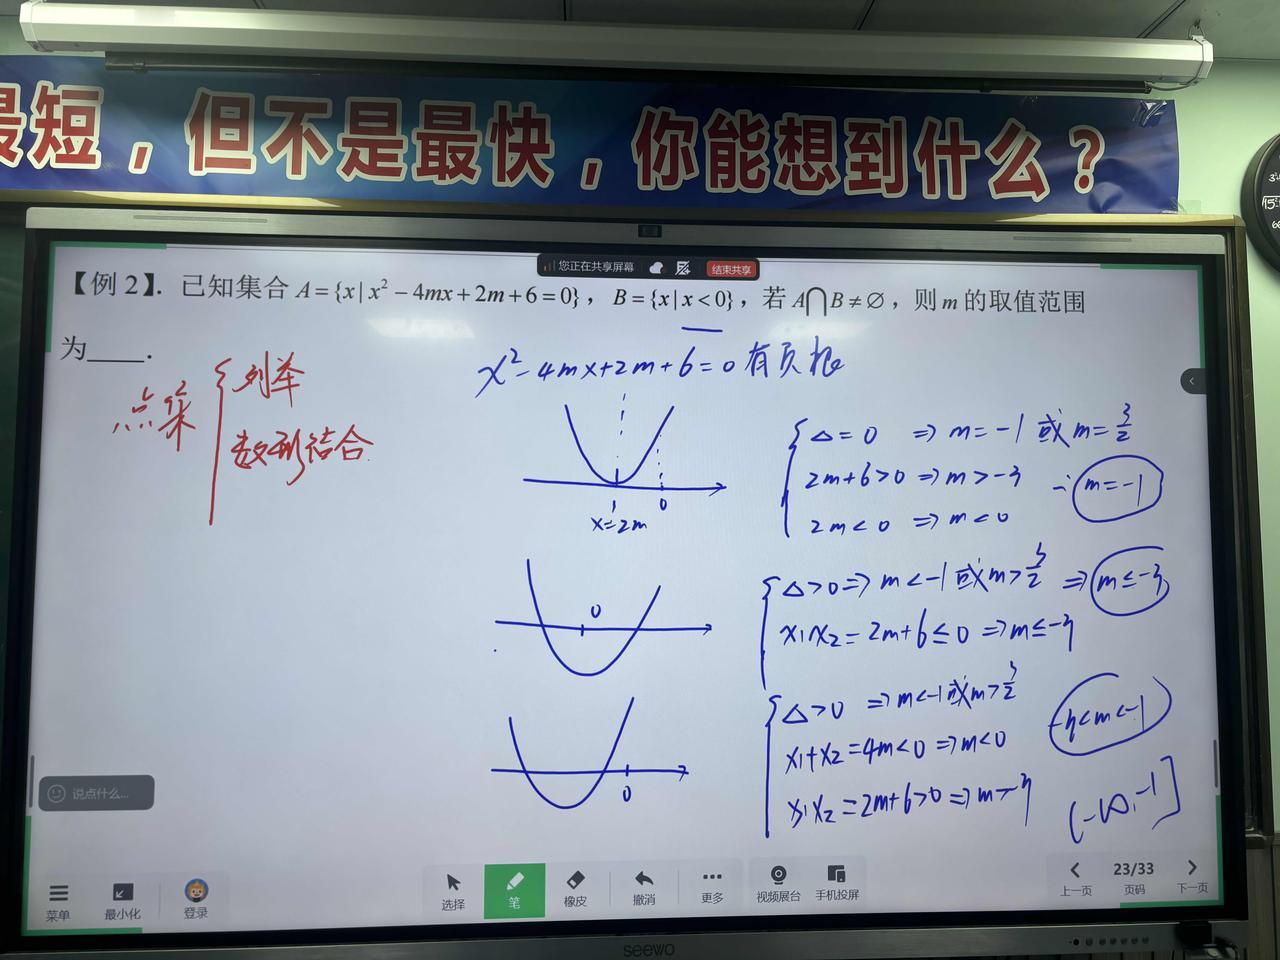 最短，但不是最快，你能想到什么？
您正在共享屏幕 结束共享
【例2】. 已知集合 A={x|x²－4mx+2m+6=0}，B={x|x<0}，若 A⋂B≠∅，则 m 的取值范围
为____.
x²-4mx+2m+6=0有负根
点集
列举
数形结合
x=2m
0
△=0 ⇒ m=-1 或 m=3/2
2m+6>0 ⇒ m>-3 ∴ m=-1
2m<0 ⇒ m<0
0
△>0 ⇒ m<-1 或 m>3/2 ⇒ m≤-3
x₁x₂=2m+6≤0 ⇒ m≤-3
0
△>0 ⇒ m<-1 或 m>3/2
x₁+x₂=4m<0 ⇒ m<0
-3<m<-1
x₁x₂=2m+6>0 ⇒ m>-3
(-∞,-1]
说点什么...
菜单 最小化 登录 选择 笔 橡皮 撤消 更多 视频展台 手机投屏 上一页 23/33 页码 下一页
seewo